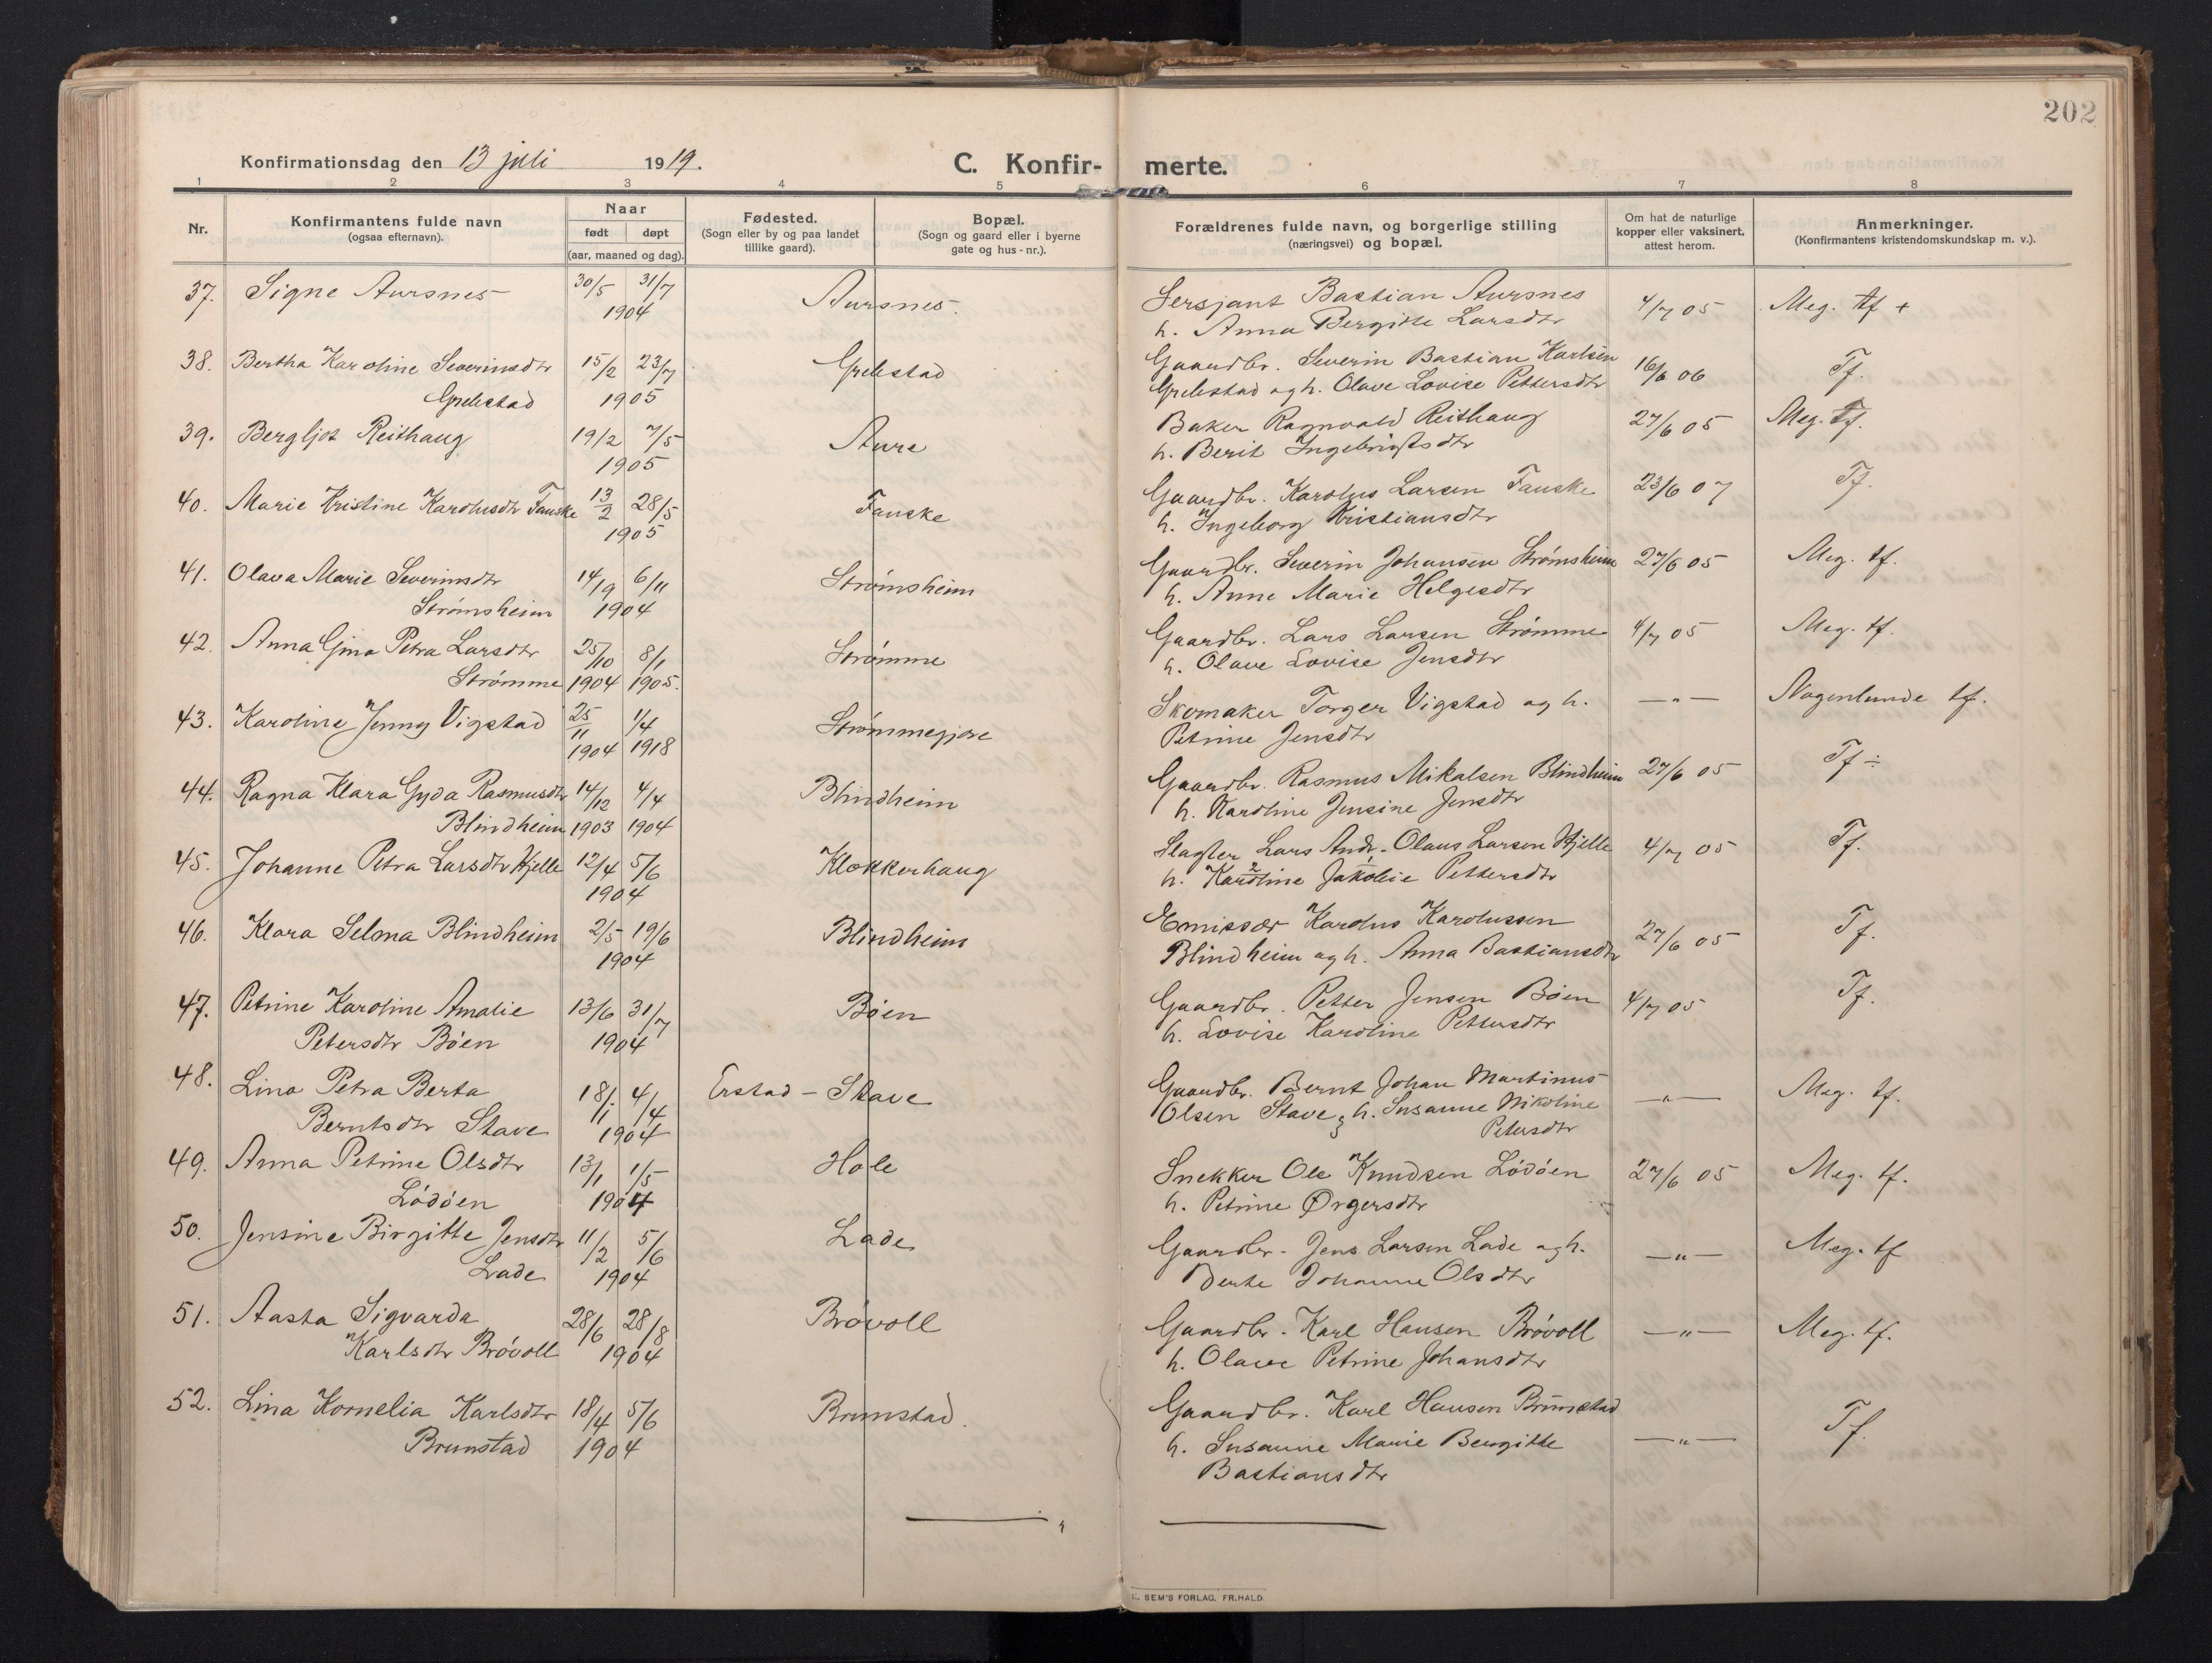 202
Konfirmationsdag den 13 juli 1919.
C. Konfir- merte.
1 2 3 4 5 6 7 8
Nr.
Konfirmantens fulde navn
(ogsaa efternavn).
Naar
født døpt
(aar, maaned og dag).
Fødested.
(Sogn eller by og paa landet
tillike gaard).
Bopæl.
(Sogn og gaard eller i byerne
gate og hus-nr.).
Forældrenes fulde navn, og borgerlige stilling
(næringsvei) og bopæl.
Om hat de naturlige
kopper eller vaksinert,
attest herom.
Anmerkninger.
(Konfirmantens kristendomskundskap m. v.).
37. Signe Aursnes 30/5 31/7 Aursnes. Sersjant Bastian Aursnes 4/7 05 Meg. tf +
1904 h. Anna Bergitte Larsdtr
38. Bertha Karoline Severinsdtr 15/2 23/7 Grebstad Gaardbr. Severin Bastian Karlsen 16/6 06 Tf.
Grebstad 1905 Grebstad og h. Olave Lovise Pettersdtr
39. Bergljot Reithaug 19/2 7/5 Aure Baker Ragnvald Reithaug 27/6 05 Meg. Tf.
1905 h. Berit Ingebrigtsdtr
40. Marie Kristine Karolusdtr Fauske 13/2 28/5 Fauske Gaardbr. Karolus Larsen Fauske 23/6 07 Tf.
1905 h. Ingeborg Kristiansdtr
41. Olava Marie Severinsdtr 14/9 6/11 Strømsheim Gaardbr. Severin Johansen Strømsheim 27/6 05 Meg. tf.
Strømsheim 1904 h. Anne Marie Helgesdtr
42. Anna Gina Petra Larsdtr 25/10 8/1 Strømme Gaardbr. Lars Larsen Strømme 4/7 05 Meg. tf.
Strømme 1904 1905. h. Olave Lovise Jensdtr
43. Karoline Jenny Vigstad 25/11 1/4 Strømmegjære Skomaker Torger Vigstad og h. — " — Nogenlunde tf.
1904 1918 Petrine Jensdtr
44. Ragna Klara Gyda Rasmusdtr 14/12 4/4 Blindheim Gaardbr. Rasmus Mikalsen Blindheim 27/6 05 Tf ÷
Blindheim 1903 1904 h. Karoline Jensine Jensdtr
45. Johanne Petra Larsdtr Hjelle 12/4 5/6 Klokkerhaug Slagter Lars Andr. Olaus Larsen Hjelle 4/7 05 Tf.
1904 h. Karoline Jakobie Pettersdtr
46. Klara Selma Blindheim 2/5 19/6 Blindheim Emissær Karolus Karolussen 27/6 05 Tf.
1904 Blindheim og h. Anna Bastiansdtr
47. Petrine Karoline Amalie 13/6 31/7 Bøen Gaardbr. Petter Jensen Bøen 4/7 05 Tf.
Petersdtr Bøen 1904 h. Lovise Karoline Pettersdtr
48. Lina Petra Berta 18/1 4/4 Erstad - Stave Gaardbr. Bernt Johan Martinus — " — Meg. tf.
Berntsdtr Stave 1904 Olsen Stave, h. Susanne Nikoline
Petersdtr
49. Anna Petrine Olsdtr 13/1 1/5 Hole Snekker Ole Knudsen Lødøen 27/6 05 Meg. tf.
Lødøen 1904 h. Petrine Ørgersdtr
50. Jensine Birgitte Jensdtr 11/2 5/6 Lade Gaardbr. Jens Larsen Lade og h. — " — Meg. tf
Lade 1904 Berte Johanne Olsdtr
51. Aasta Sigvarda 28/6 28/8 Brøvoll Gaardbr. Karl Hansen Brøvoll — " — Meg. tf.
Karlsdtr Brøvoll 1904 h. Olave Petrine Johansdtr
52. Lina Kornelia Karlsdtr 18/4 5/6 Brunstad. Gaardbr. Karl Hansen Brunstad — " — Tf.
Brunstad 1904 h. Susanne Marie Bergitte
Bastiansdtr
SEM'S FORLAG, FR.HALD